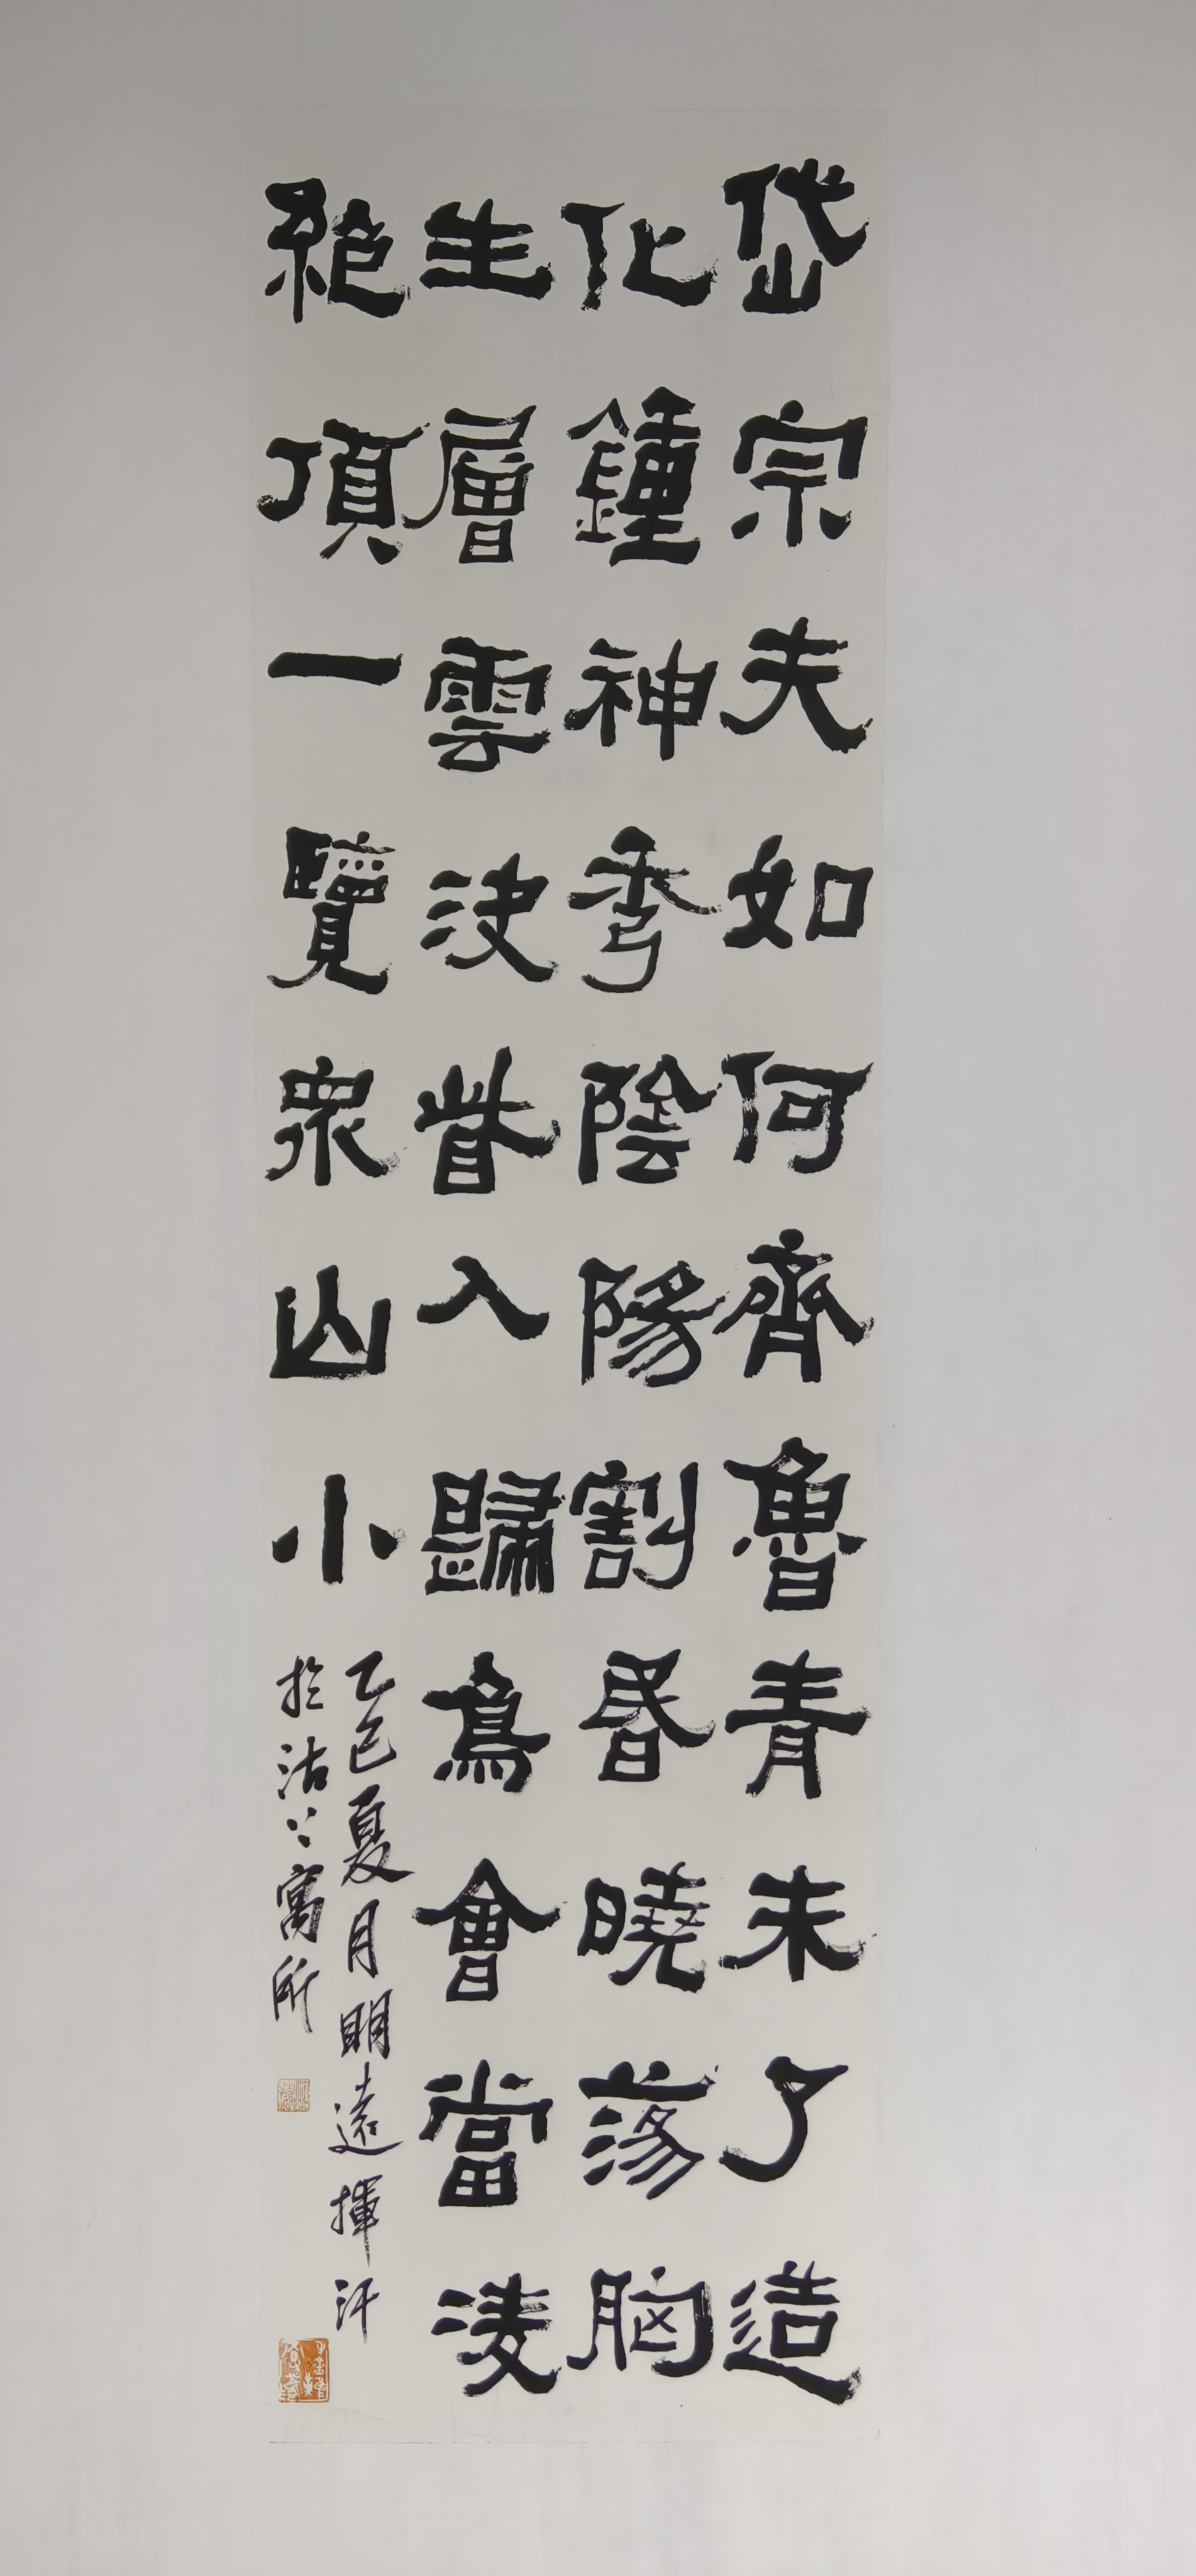 岱宗夫如何齊魯青未了造
化鍾神秀陰陽割昬曉蕩胸
生層雲決眥入歸鳥會當凌
絶頂一覽衆山小
乙巳夏月明遠揮汗
於沽上寓所